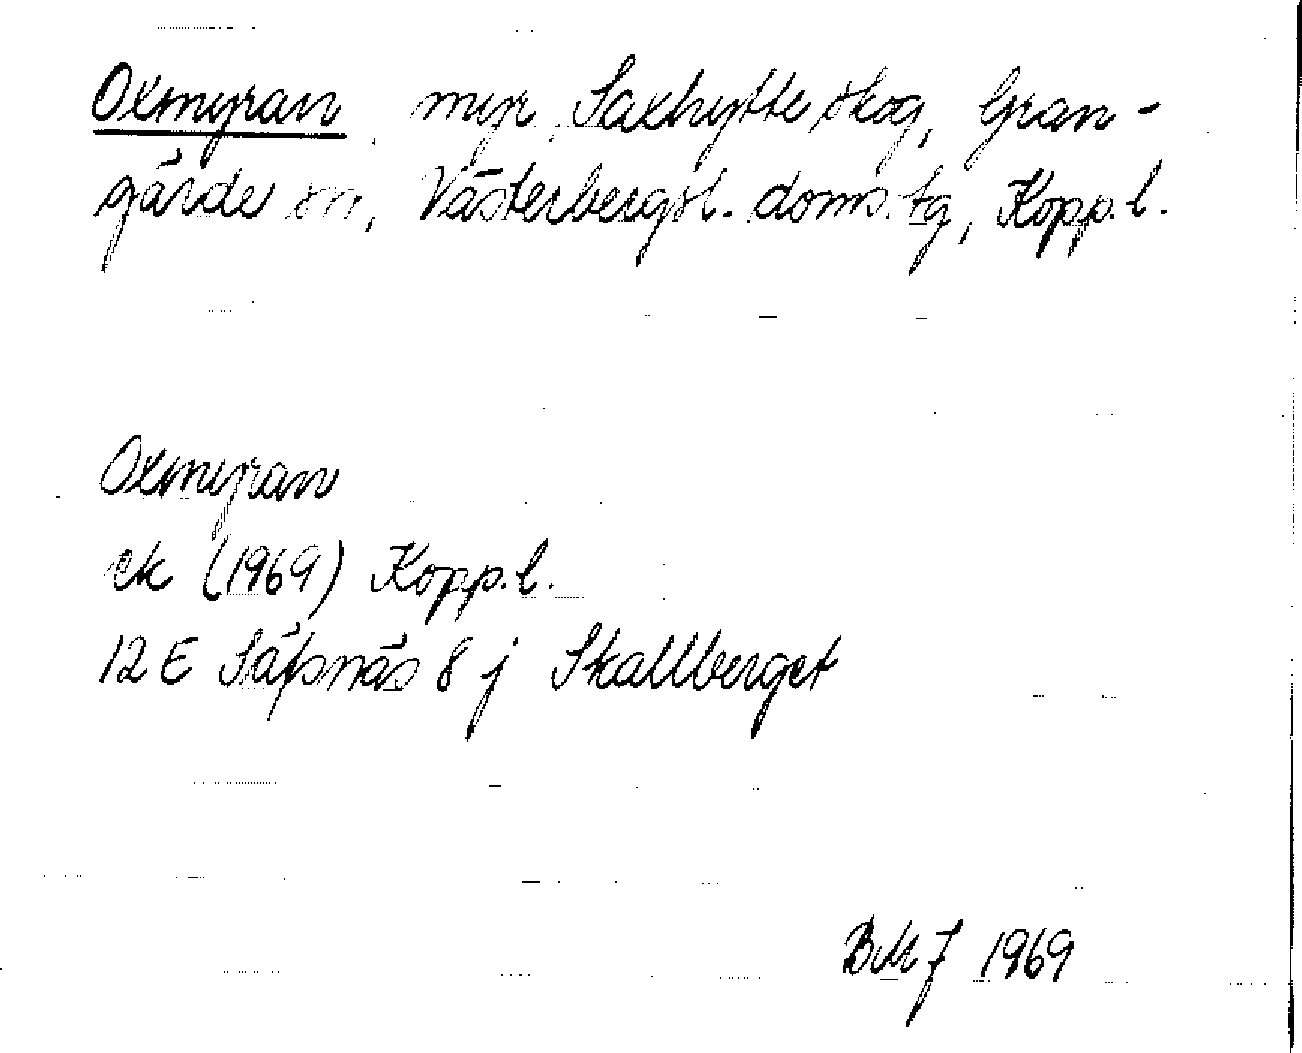 Oxmyran, myr, Saxhytte skog, Gran-
gärde sn, Västerbergsl. doms. tg, Kopp. l.
Oxmyran
ek (1969) Kopp. l.
12 E Säfsnäs 8 j Skallberget
BMJ 1969